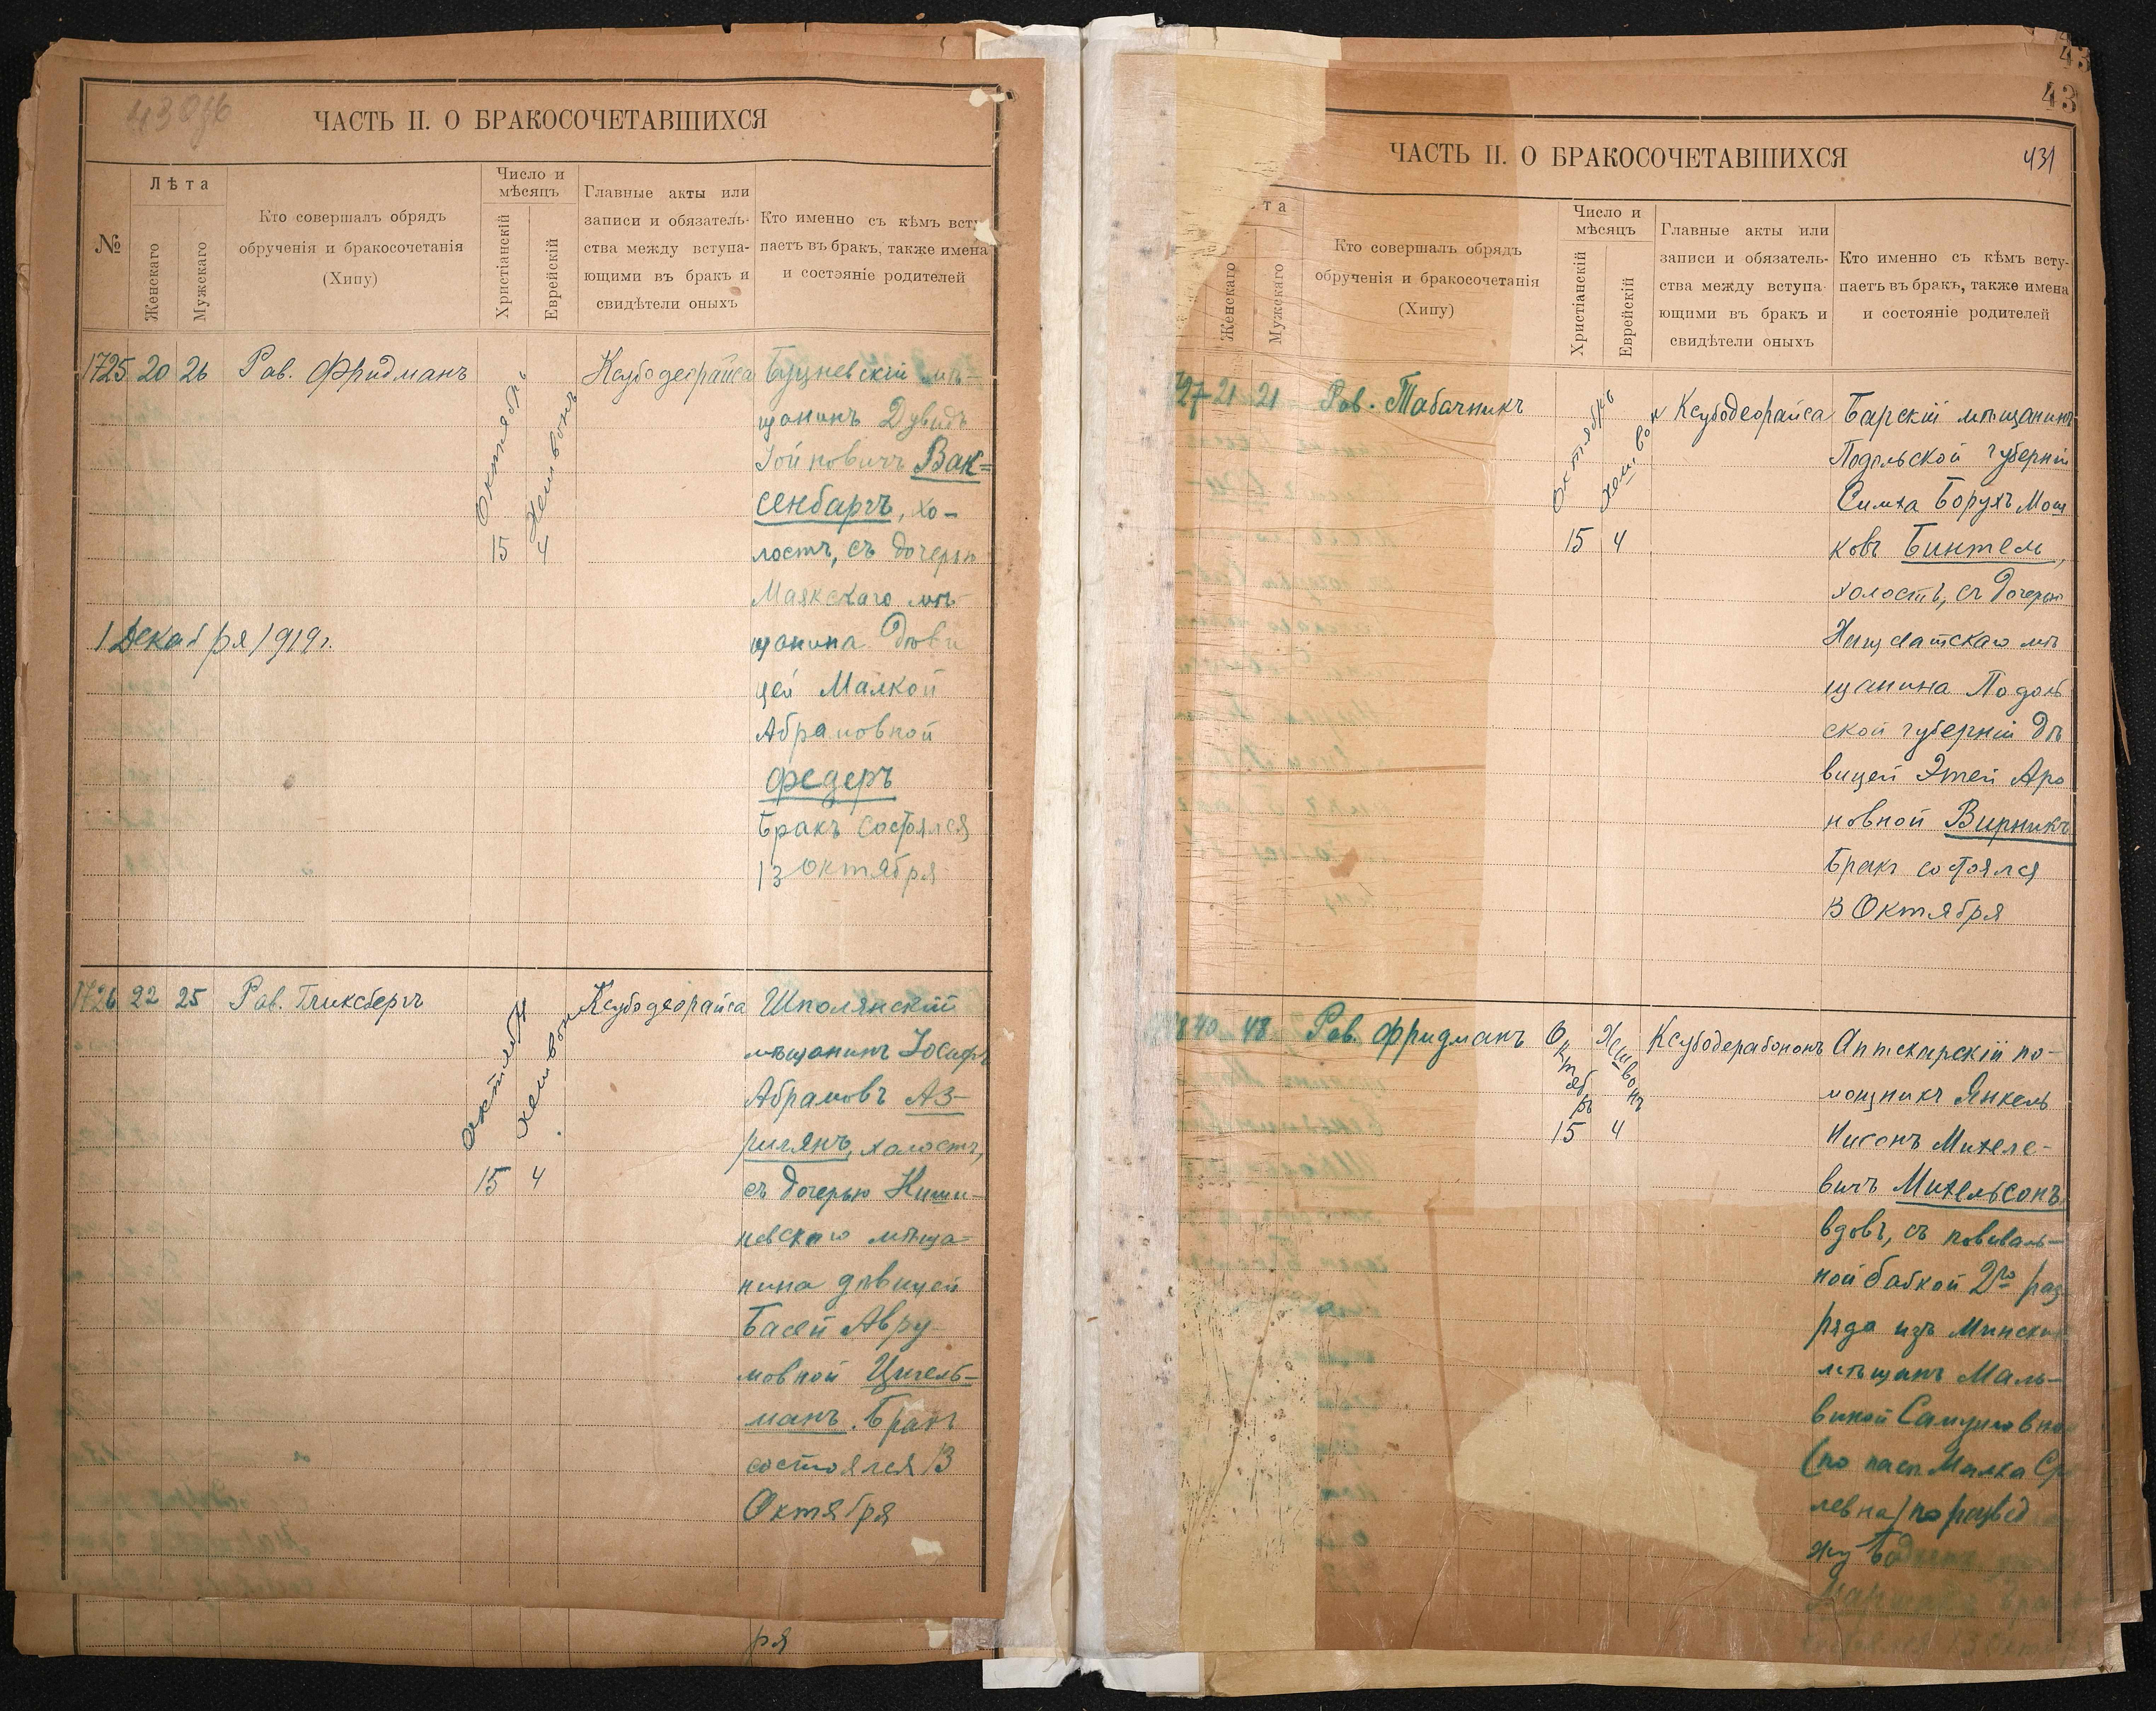 430об
ЧАСТЬ II. О БРАКОСОЧЕТАВШИХСЯ
№
Лѣта
Женскаго
Мужскаго
Кто совершалъ обрядъ
обрученія и бракосочетанія
(Хипу)
Число и
мѣсяцъ
Христіанскій
Еврейскій
Главные акты или
записи и обязатель-
ства между вступа-
ющими въ бракъ и
свидѣтели оныхъ
Кто именно съ кѣмъ всту-
паетъ въ бракъ, также имена
и состояніе родителей
1725 20 26 Рав. Фридманъ
Октябрь
Хешвонъ
15 4
Ксубодеорайса
Буцневскій мѣ-
щанинъ Дувидъ
Іойновичъ Вак=
сенбаргъ, хо-
лостъ, съ дочерью
Маякскаго мѣ-
щанина дѣви
цей Малкой
Абрамовной
Федеръ
Бракъ состоялся
13 Октября
1 Декабря 1919 г.
1726 22 25 Рав. Гликсбергъ
Октябрь
Хешвонъ
15 4
Ксубодеорайса
Шполянскій
мѣщанинъ Іосифъ
Абрамовъ Аз-
рилянъ, холостъ,
съ дочерью Киши-
невскаго мѣща-
нина дѣвицей
Басей Авру-
мовной Цигель-
манъ. Бракъ
состоялся 13
Октября
ря
43
43
431
ЧАСТЬ II. О БРАКОСОЧЕТАВШИХСЯ
та
Женскаго
Мужскаго
Кто совершалъ обрядъ
обрученія и бракосочетанія
(Хипу)
Число и
мѣсяцъ
Христіанскій
Еврейскій
Главные акты или
записи и обязатель-
ства между вступа-
ющими въ бракъ и
свидѣтели оныхъ
Кто именно съ кѣмъ всту-
паетъ въ бракъ, также имена
и состояніе родителей
27 21 21 Рав. Табачникъ
Октябрь
Хешвон
15 4
Ксубодеорайса
Барскій мѣщанинъ
Подольской губерніи
Симха Борухъ Мош
ковъ Бинтель,
холостъ, съ дочерью
мѣ
щанина Подоль
ской губерніи дѣ
вицей Этей Аро
новной Вирникъ
Бракъ состоялся
13 Октября
40 48 Рав. Фридманъ
Октябрь
Хешвонъ
15 4
Ксубодерабононъ
Аптекарскій по-
мощникъ Янкель
Нисонъ Михеле-
вичъ Михельсонъ
вдовъ, съ поваль-
ной бабкой 2го раз
ряда изъ Мински
мѣщанъ Маль-
виной Самуиловно
(по пасп Малка Ср
левна) по развед
Бра
13 Октя